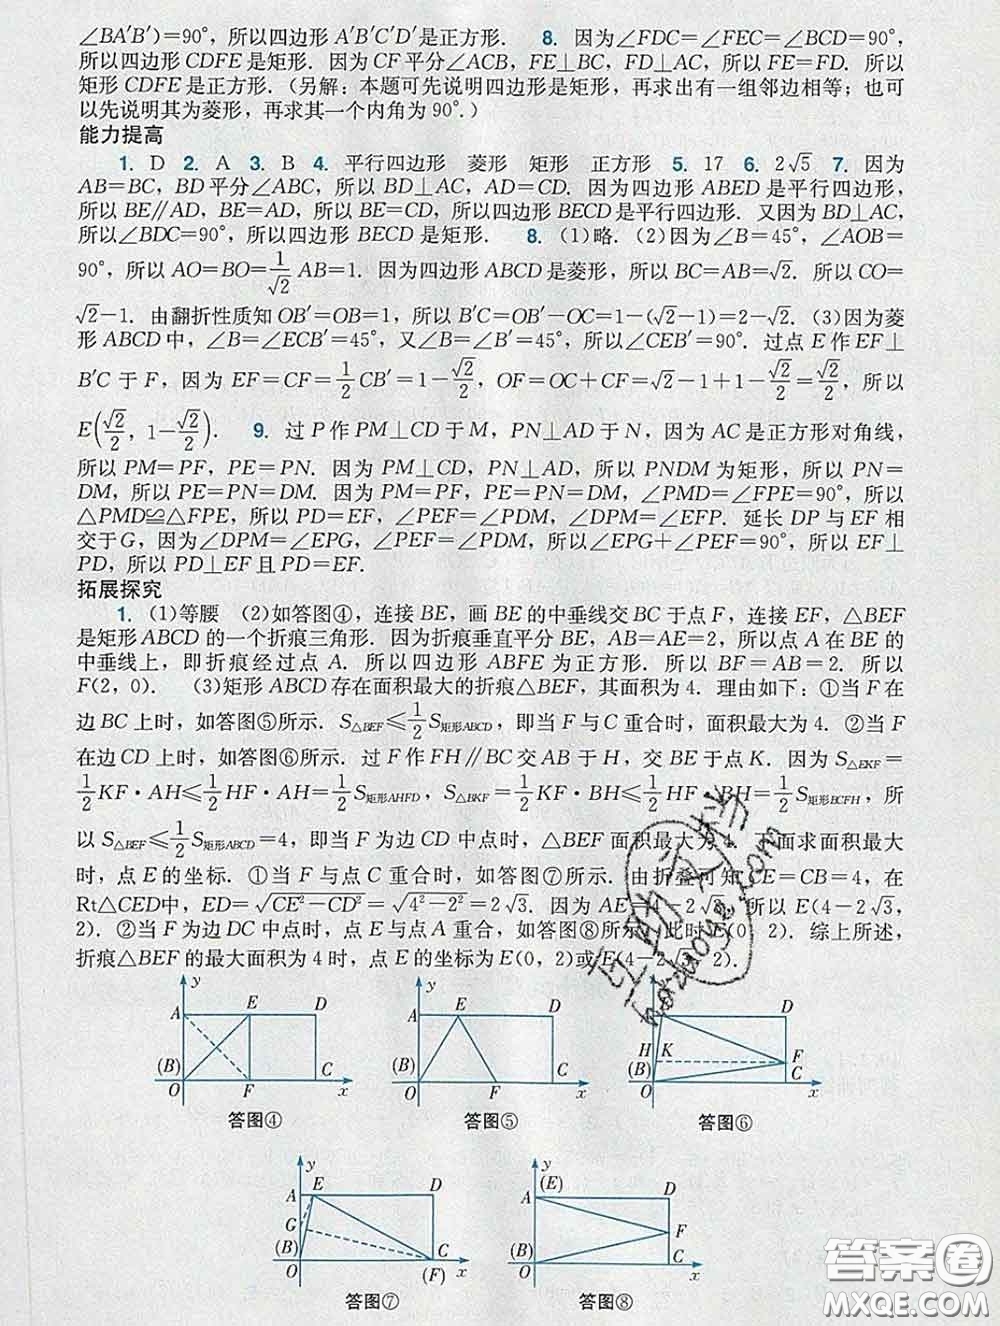 ∠BA′B′)=90°，所以四边形 A′B′C′D′是正方形．  8. 因为∠FDC=∠FEC=∠BCD=90°，
所以四边形 CDFE 是矩形．因为 CF 平分∠ACB，FE⊥BC，FD⊥AC，所以 FE=FD．所以
矩形 CDFE 是正方形．(另解：本题可先说明四边形是矩形，再求出有一组邻边相等；也可
以先说明其为菱形，再求其一个内角为 90°.)
能力提高
1. D  2. A  3. B  4. 平行四边形  菱形  矩形  正方形  5. 17  6. 2√5  7. 因为
AB=BC，BD 平分∠ABC，所以 BD⊥AC，AD=CD．因为四边形 ABED 是平行四边形，
所以 BE∥AD，BE=AD，所以 BE=CD，所以四边形 BECD 是平行四边形．又因为 BD⊥AC，
所以∠BDC=90°，所以四边形 BECD 是矩形．  8. (1)略．(2)因为∠B=45°，∠AOB=
90°，所以 AO=BO=1/√2 AB=1．因为四边形 ABCD 是菱形，所以 BC=AB=√2．所以 CO=
√2-1．由翻折性质知 OB′=OB=1，所以 B′C=OB′-OC=1-(√2-1)=2-√2．(3)因为菱
形 ABCD 中，∠B=∠ECB′=45°，又∠B=∠B′=45°，所以∠CEB′=90°．过点 E 作 EF⊥
B′C 于 F，因为 EF=CF=1/2 CB′=1-√2/2，OF=OC+CF=√2-1+1-√2/2=√2/2，所以
E(√2/2，1-√2/2)．  9. 过 P 作 PM⊥CD 于 M，PN⊥AD 于 N，因为 AC 是正方形对角线，
所以 PM=PF，PE=PN．因为 PM⊥CD，PN⊥AD，所以 PNDM 为矩形，所以 PN=
DM，所以 PE=PN=DM．因为 PM=PF，PE=DM，∠PMD=∠FPE=90°，所以
△PMD≌△FPE，所以 PD=EF，∠PEF=∠PDM，∠DPM=∠EFP．延长 DP 与 EF 相
交于 G，因为∠DPM=∠EPG，∠PEF=∠PDM，所以∠EPG+∠PEF=90°，所以 EF⊥
PD，所以 PD⊥EF 且 PD=EF．
拓展探究
1. (1)等腰  (2)如答图④，连接 BE，画 BE 的中垂线交 BC 于点 F，连接 EF，△BEF
是矩形 ABCD 的一个折痕三角形．因为折痕垂直平分 BE，AB=AE=2，所以点 A 在 BE 的
中垂线上，即折痕经过点 A．所以四边形 ABFE 为正方形．所以 BF=AB=2．所以
F(2，0)．  (3)矩形 ABCD 存在面积最大的折痕△BEF，其面积为 4．理由如下：①当 F 在
边 BC 上时，如答图⑤所示．S△BEF≤1/2 S矩形ABCD，即当 F 与 C 重合时，面积最大为 4．②当 F
在边 CD 上时，如答图⑥所示．过 F 作 FH∥BC 交 AB 于 H，交 BE 于点 K．因为 S△EKF=
1/2 KF·AH≤1/2 HF·AH=1/2 S矩形AHFD，S△BKF=1/2 KF·BH≤1/2 HF·BH=1/2 S矩形BCFH，所
以 S△BEF≤1/2 S矩形ABCD=4，即当 F 为边 CD 中点时，△BEF 面积最大为 4．下面求面积最大
时，点 E 的坐标．①当 F 与点 C 重合时，如答图⑦所示．由折叠可知 CE=CB=4，在
Rt△CED中，ED=√(CE²-CD²)=√(4²-2²)=2√3．因为 AE=4-2√3，所以 E(4-2√3，
2)．②当 F 为边 DC 中点时，点 E 与点 A 重合，如答图⑧所示．此时 E(0，2)．综上所述，
折痕△BEF 的最大面积为 4 时，点 E 的坐标为 E(0，2)或 E(4-2√3，2)．
y A E D (B) O F C x
答图④
y A E D (B) O F C x
答图⑤
D H K F (B) C O x
答图⑥
y A E D G (B) C O (F) x
答图⑦
y (E) A D F (B) C O x
答图⑧
答案圈
MXQE.COM